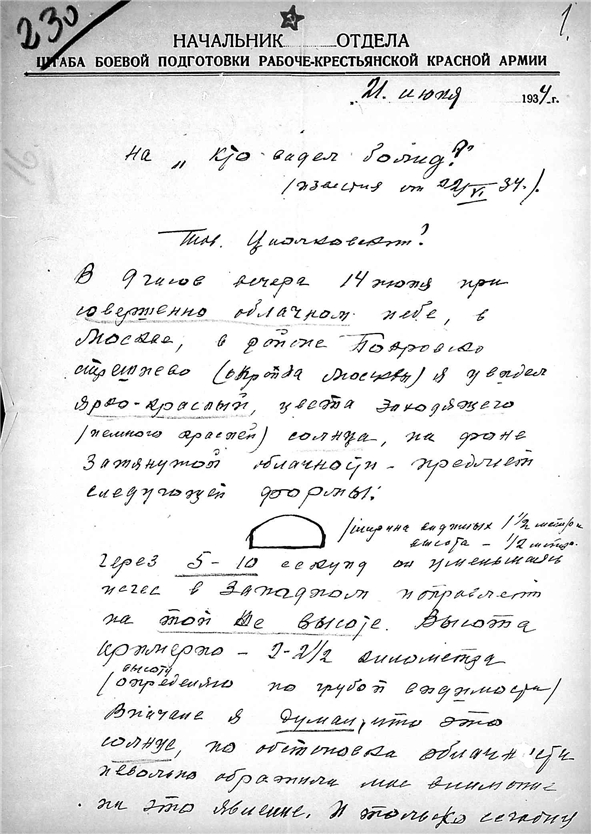 230
1
НАЧАЛЬНИК ОТДЕЛА
ШТАБА БОЕВОЙ ПОДГОТОВКИ РАБОЧЕ-КРЕСТЬЯНСКОЙ КРАСНОЙ АРМИИ
21. июля 1934 г.
16
На „Кто видел болид?"
/Известия от 22/VI 34./.
Тов. Циолковский?
В 9 часов вечера 14 июня при
совершенно облачном небе, в
Москве, в районе Покровско
стрешнево (окраина Москвы) я увидел
ярко-красный, цвета заходящего
/немного красней/ солнца, на фоне
затянутой облачности - предмет
следующей формы:
/ширина видимых 1 1/2 метра
высота - 1/2 метра.
Через 5-10 секунд он уменьшаясь
исчез в Западном направлен
на той же высоте. Высота
примерно - 2-2 1/2 километра
/высоту
определяю по грубой видимости/
Вначале я думал, что это
солнце, но обстановка облачности
невольно обратили мое внимание
на это явление. И только сегодня